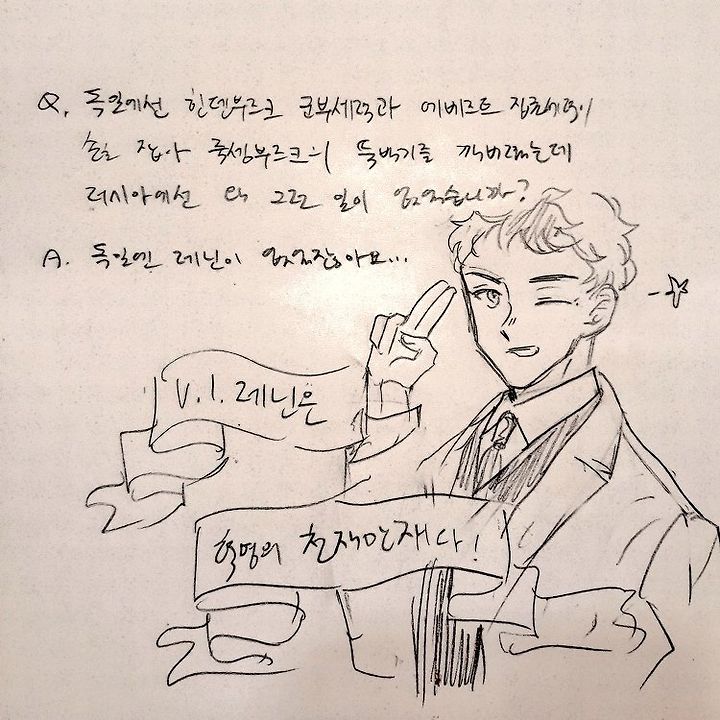 Q. 독일에선 힌덴부르크 군부세력과 에베르트 집권세력이
손잡아 룩셈부르크의 뚝배기를 깨버렸는데
러시아에선 왜 그런 일이 없었습니까?
A. 독일엔 레닌이 없었잖아요...
V.I. 레닌은
혁명의 천재만재다!